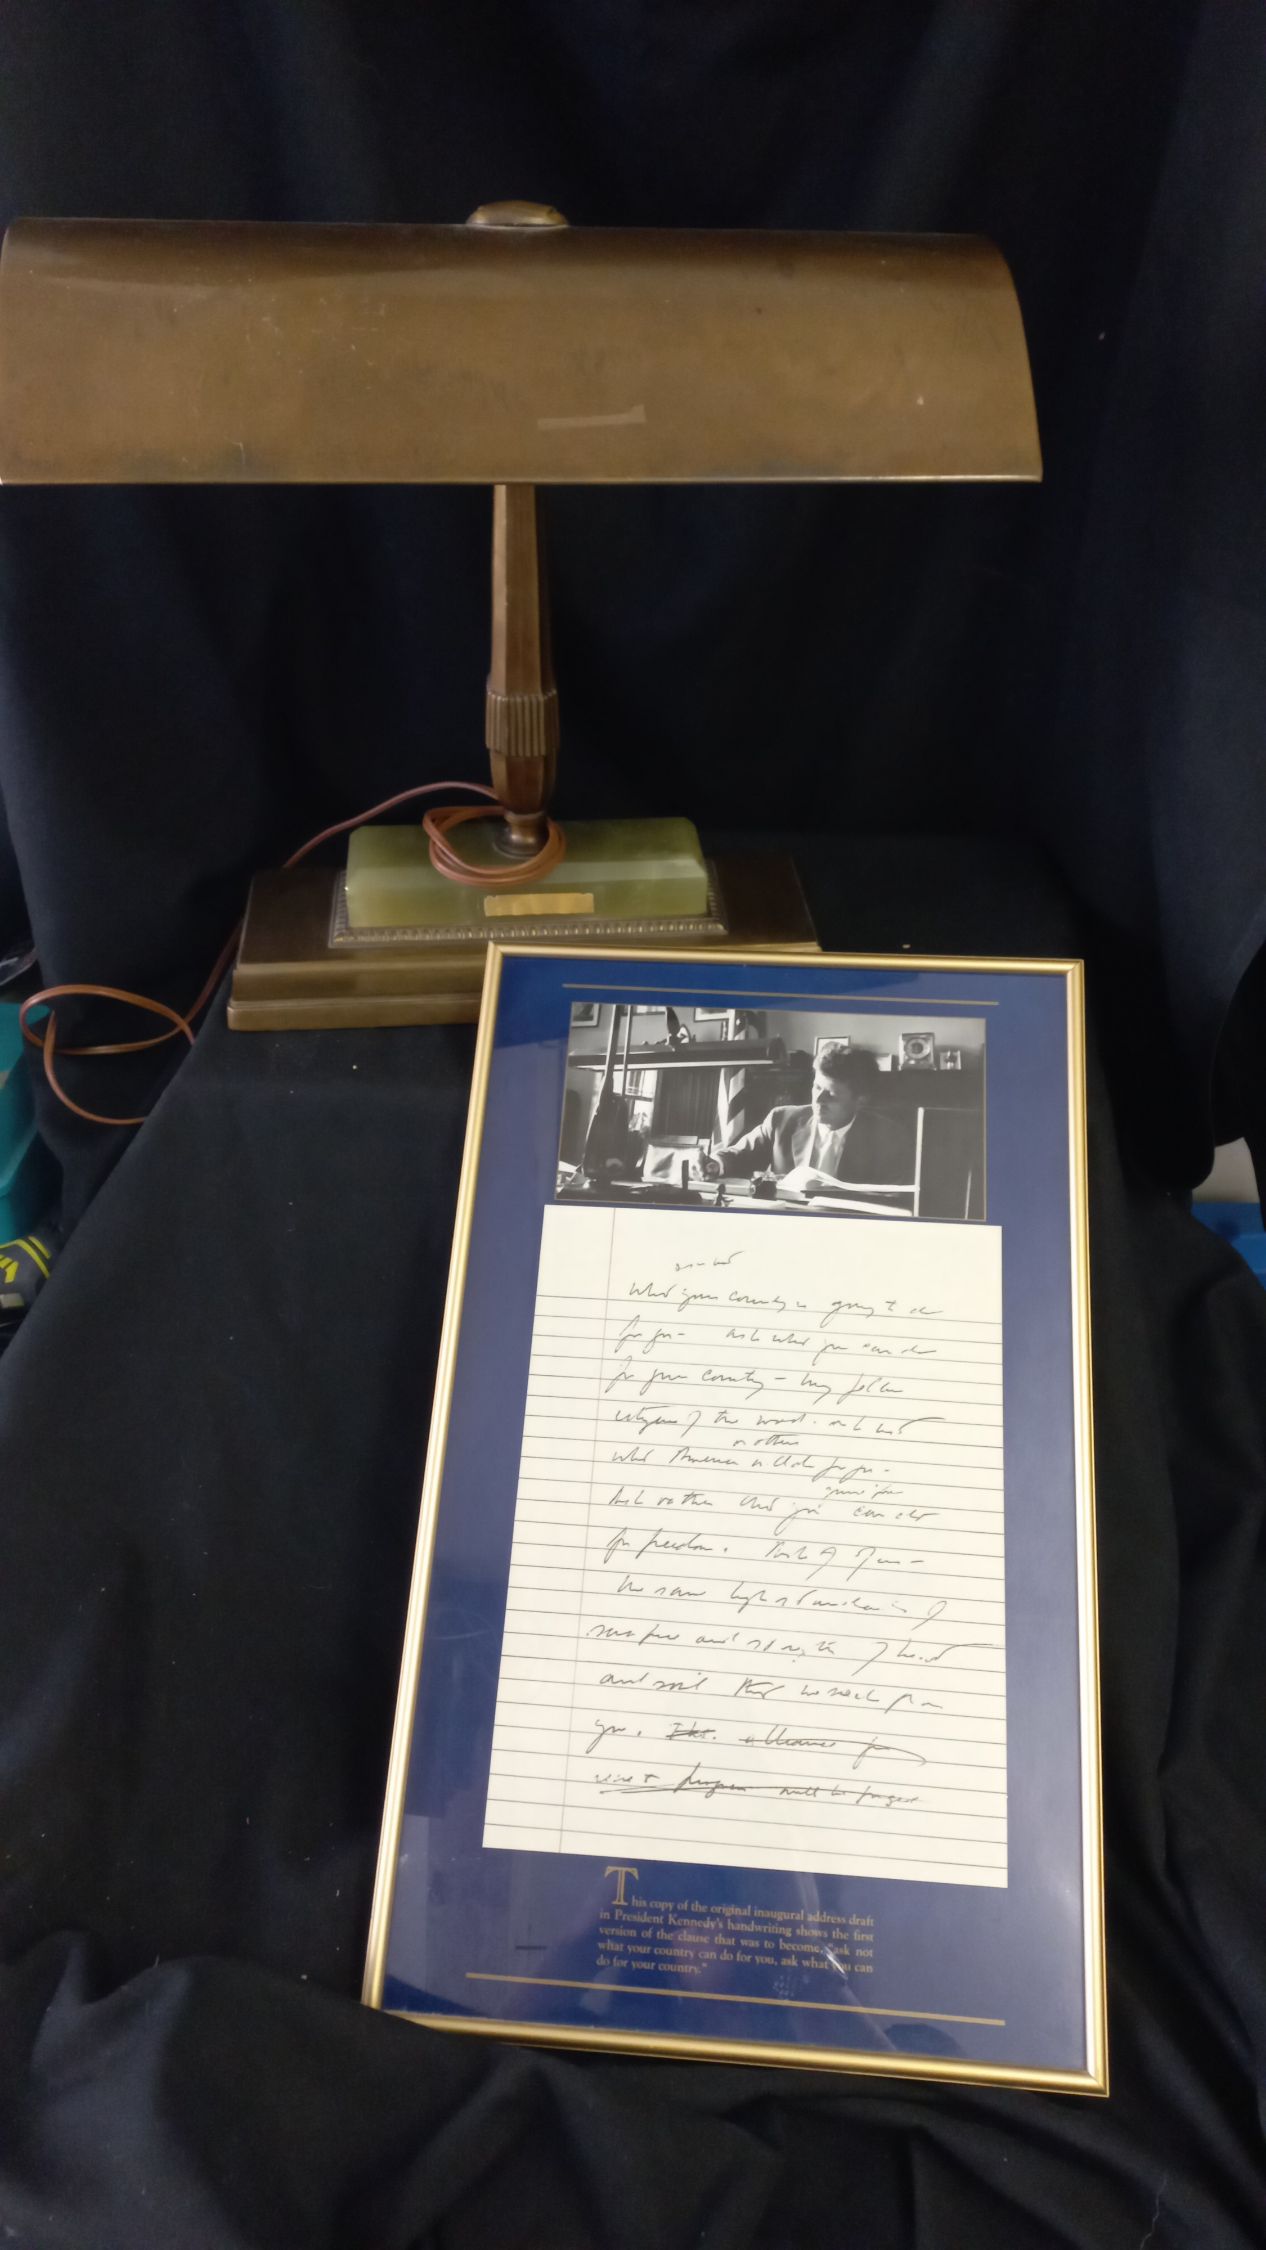 ask not
what your country is going to do
for you - ask what you can do
for your country - my fellow
citizens of the world - ask not
or others
what America will do for you -
Ask rather what you can do
for freedom. Ask of us -
the same high standards of
sacrifice and strength of heart
and will that we seek from
you. alliance for
progress will be
This copy of the original inaugural address draft
in President Kennedy's handwriting shows the first
version of the clause that was to become, "ask not
what your country can do for you, ask what you can
do for your country."